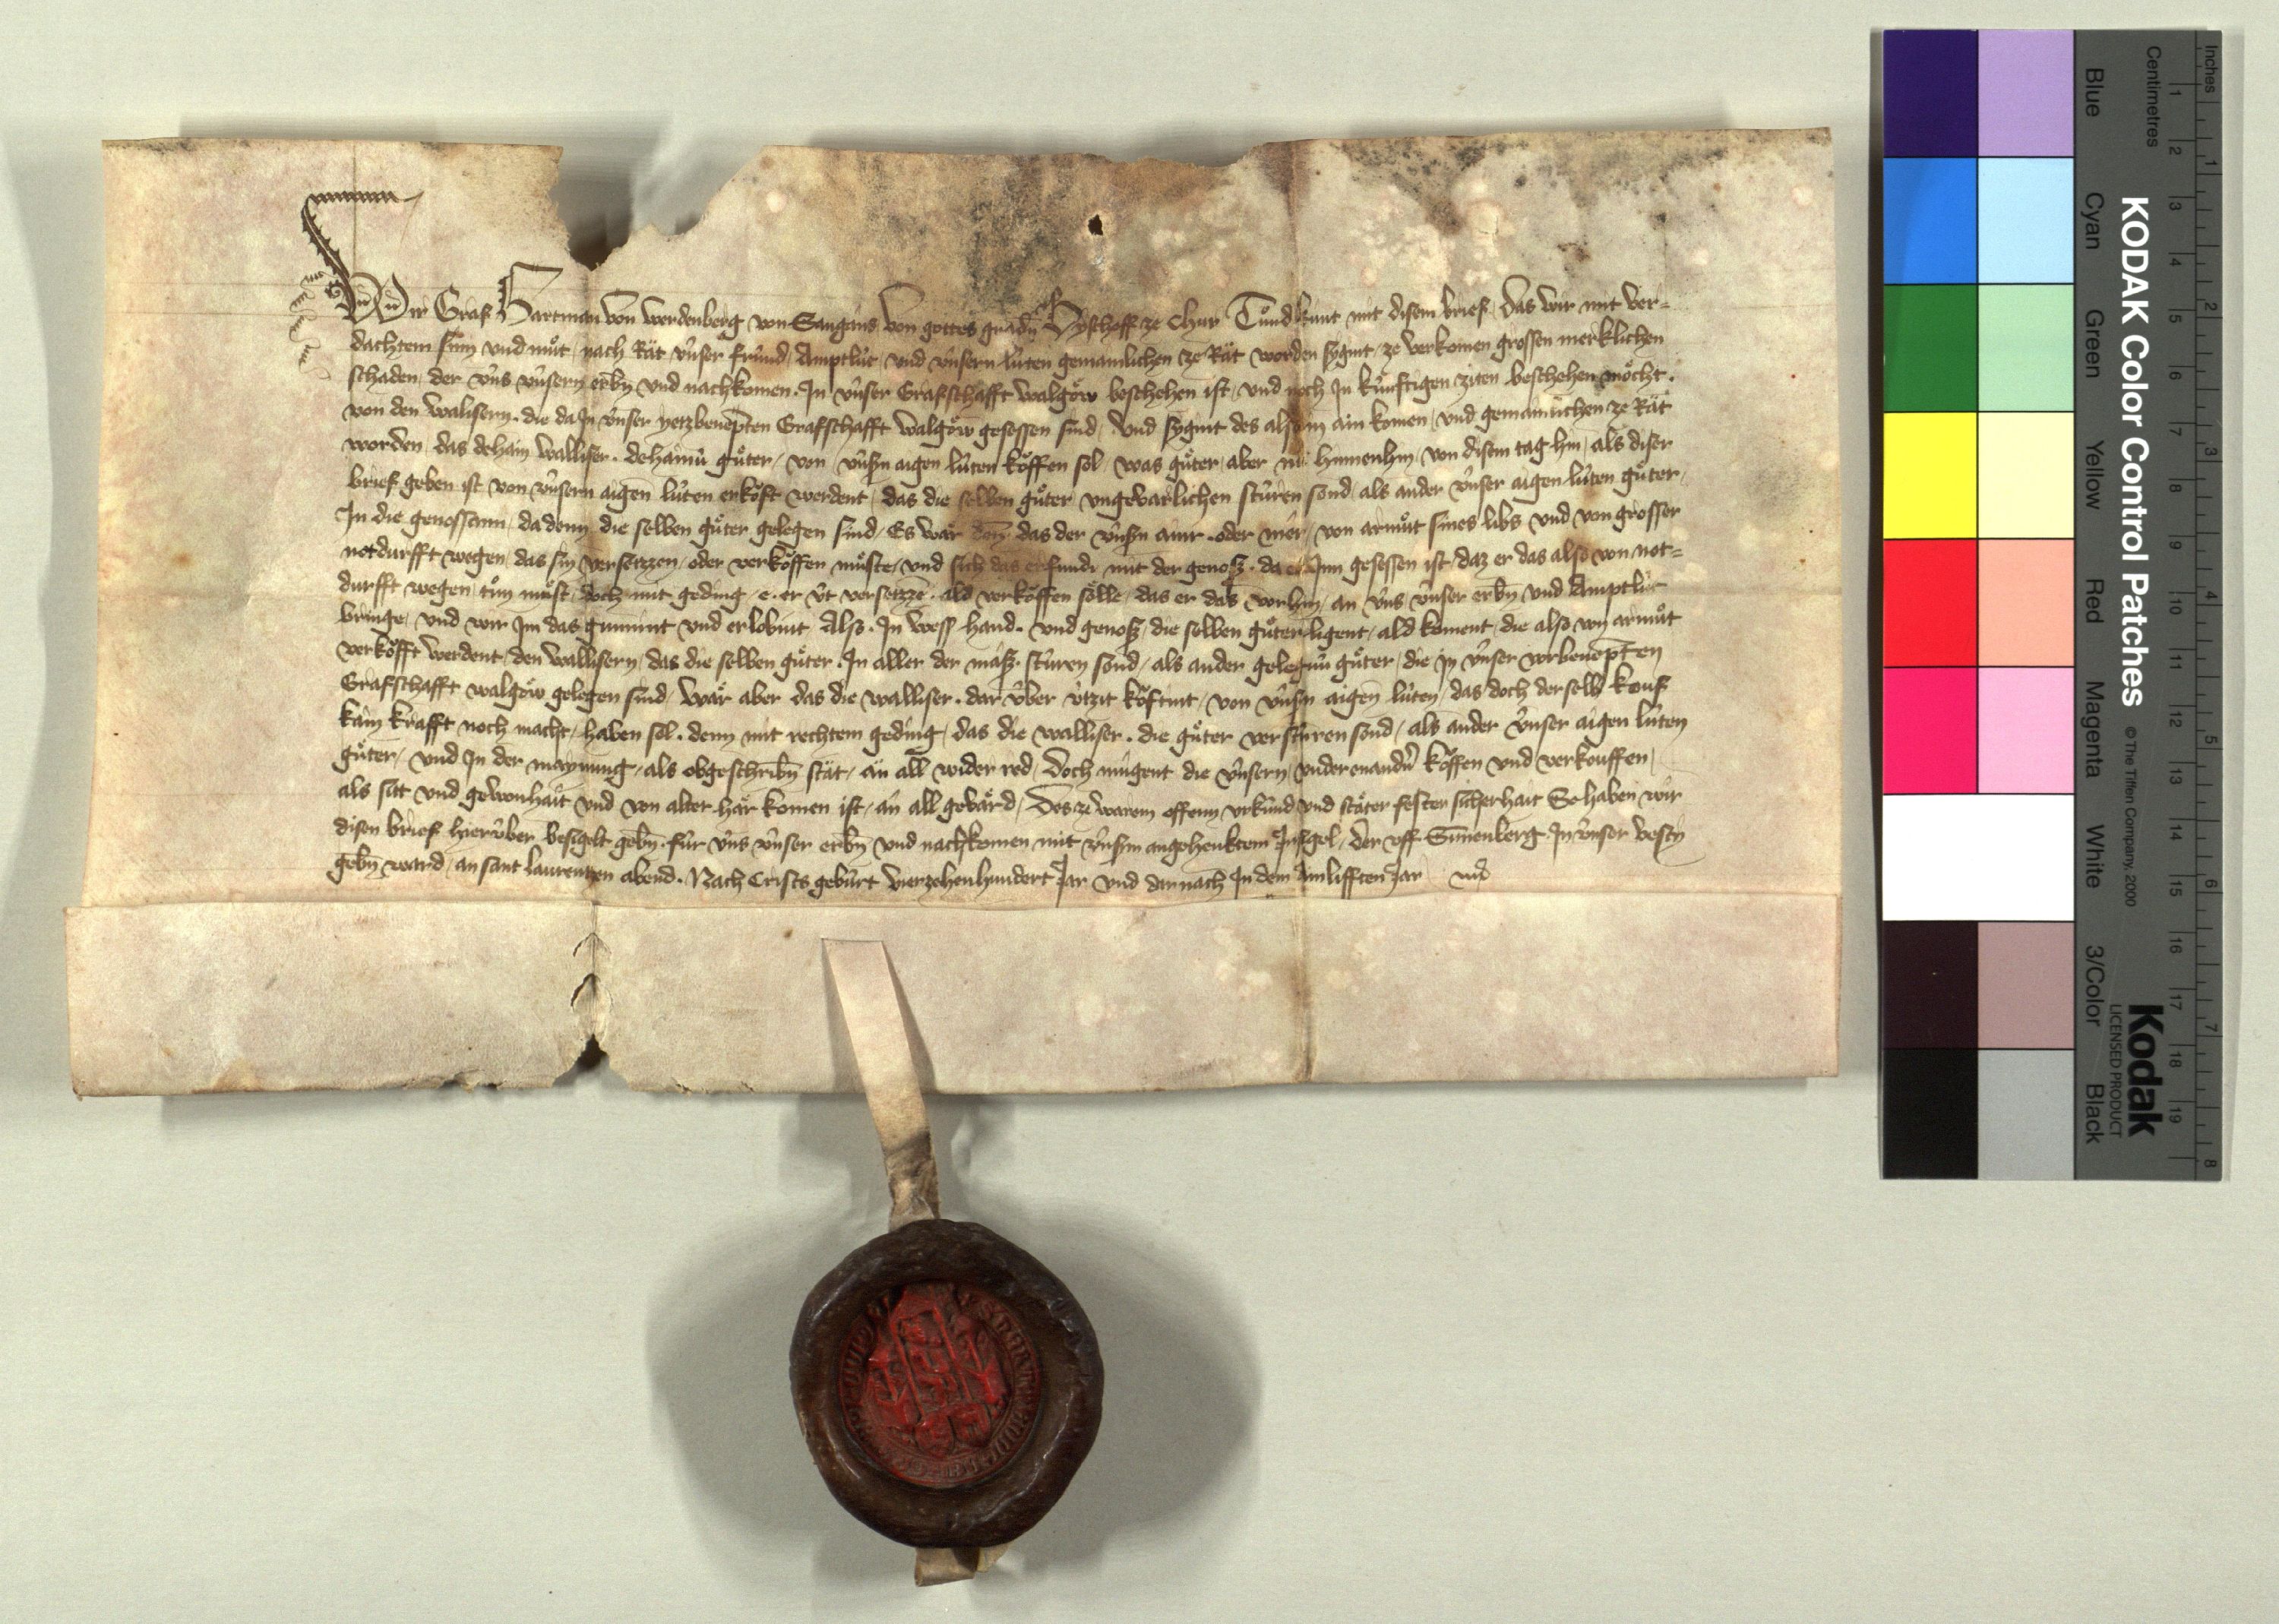 Wir Graf Hartman von Werdenberg von Sangans von gottes gnadn Byschoff ze Chur Tůnd kunt mit disem brief, das wir mit ver=
dachtem sinn und můt, nach Rät ünser fründ, Amptlüt, und ünsern lüten gemainlichen ze Rät worden sygint, ze verkomen grossen merklichen
schaden, der üns ünsern erbn und nachkomen. In ünser Grafschafft walgöw beschehen ist, und noch In künftigen ziten beschehen möcht.
von den walisern. die da In ünser yetzbenepten Grafschafft walgöw gesessen sind, Und sygint des also in ain komen, und gemainlichen ze Rät
worden, das dehain walliser. dehainü güter, von ünsn aigen lüten köffen sol, was güter, aber nu hinnenhin, von disem tag hin, als diser
brief geben ist von ünsern aigen lüten erköft werdent, das die selben güter ungevarlichen stüren sond, als ander ünser aigen lüten güter,
In die genossami, da denn die selben güter gelegen sind, Es wär denn das der ünsn ainr. oder mer, von armůt sines libs und von grosser
notdurfft wegen, das sin versetzzen, oder verköffen müste, und sich das erfundi mit der genosz. da er Inn gesessen ist, daz er das also von not=
durfft wegen, tůn müst, doch mit geding, e. er üt versetzze. ald verköffen sölle, das er das vorhin, an üns ünser erbn und Amptlüt
bringe, und wir Im das gunnint und erlobint Also. In wess hand. und genosz, die selben güter ligent, ald koment, die also von armůt
verköfft werdent, den wallisern, das die selben güter. In aller der mäsz. stüren sond, als ander gelegnü güter, die in ünser vorbenepten
Grafschafft walgöw gelegen sind, wär aber das die walliser. dar über ützit köftint, von ünsn aigen lüten, das doch der selb kouf
kain krafft noch macht, haben sol. denn mit rechtem geding, das die walliser. die güter verstüren sond, als ander ünser aigen lüten
güter, und In der maynung, als obgeschribn stät, än all wider red, Doch mügent die ünsern, under enandr köffen und verkouffen,
als sitt und gewonhait und von alter här komen ist, än all gevärd, Des ze warem offenn urkünd und stäter fester sicherhait So haben wir
disen brief hierüber besigelt gebn. für üns ünser erbn und nachkomen mit ünsrm angehenktem Insigel, der uff Sunnenberg In ünser vesty
gebn ward, an sant laurentzen abend. Nach Crists gebürt vierzehenhundert Jar und darnach In dem Ainlifften Jar
Inches
Centimetres
1 2 3 4 5 6 7 8
1 2 3 4 5 6 7 8 9 10 11 12 13 14 15 16 17 18 19
KODAK Color Control Patches
© The Tiffen Company, 2000
Kodak
LICENSED PRODUCT
Blue Cyan Green Yellow Red Magenta White 3/Color Black